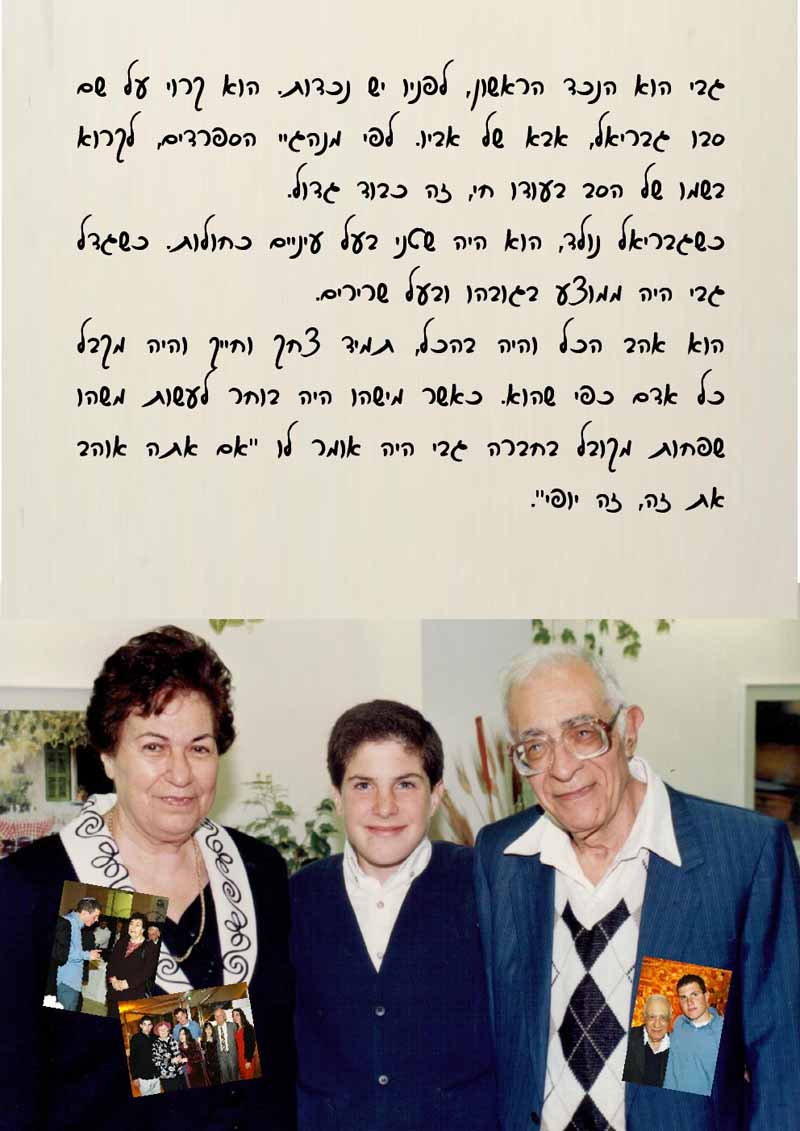 גבי הוא הנכד הראשון, לפניו יש נכדות. הוא קרוי על שם
סבו גבריאל, אבא של אביו. לפי מנהגיי הספרדים, לקרוא
בשמו של הסב בעודו חי, זה כבוד גדול.
כשגבריאל נולד, הוא היה שטני בעל עיניים כחולות. כשגדל
גבי היה ממוצע בגובהו ובעל שרירים.
הוא אהב הכל והיה בהכל, תמיד צחק וחייך והיה מקבל
כל אדם כפי שהוא. כאשר מישהו היה בוחר לעשות משהו
שפחות מקובל בחברה גבי היה אומר לו "אם אתה אוהב
את זה, זה יופי".